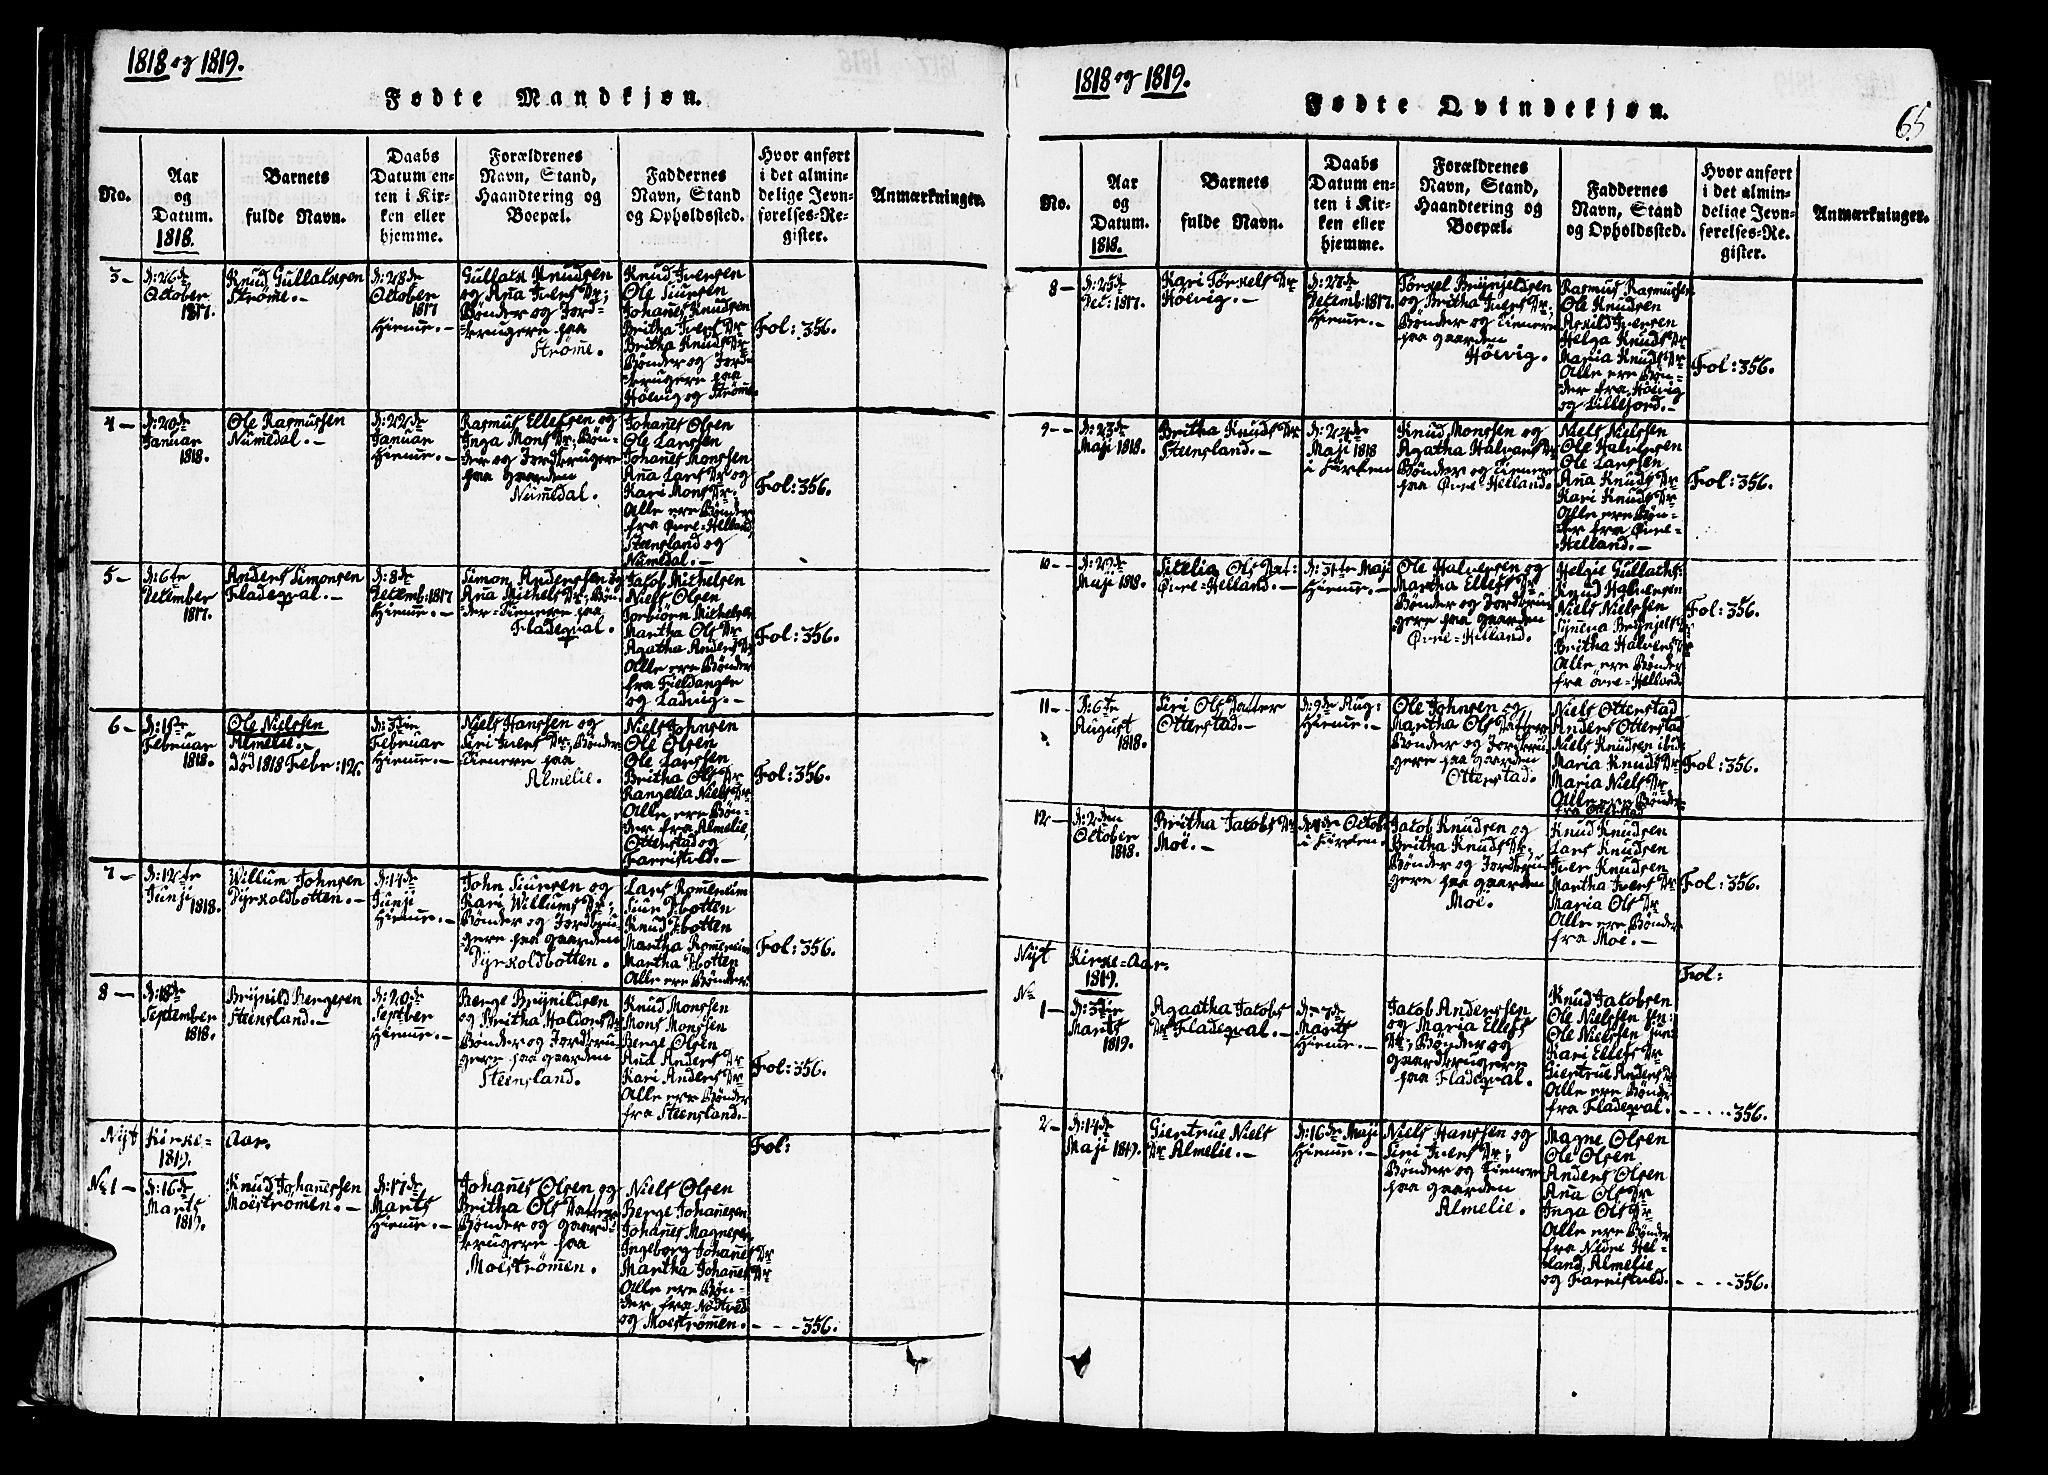 1818 og 1819.
Fødte Mandkjøn.
No.
Aar
og
Datum.
1818.
Barnets
fulde Navn.
Daabs
Datum en-
ten i Kir-
ken eller
hjemme.
Forældrenes
Navn, Stand,
Haandtering og
Boepæl.
Faddernes
Navn, Stand
og Opholdssted.
Hvor anført
i det almin-
delige Jevn-
førelses-Re-
gister.
Anmærkninger.
3-
D: 26de
October
1817.
Knud Gullaksen
Strøme.-
D: 28de
October
1817
Hiemme.-
Gullack Knudsen
og Anna Ivers Dr;
Bønder og Jord-
brugere paa
Strøme.
Knud Iversen
Ole Siursen
Johanes Knudsen
Britha Ivers Dr
Britha Knuds Dr
Bønder og Jord-
brugere paa
Hölvig og Strøme.
Fol: 356.
4-
D: 20de
Januar
1818.
Ole Rasmussen
Numedal.-
D: 22de
Januar
Hiemme.-
Rasmus Ellefsen og
Inga Mons Dr; Bøn-
der og Jordbrugere
paa gaarden
Numedal.
Johanes Olsen
Ole Larssen
Johanes Monssen
Anna Lars Dr og
Kari Mons Dr;
Alle ere Bønder
fra Øvre-Helland
Steensland og
Numedal.-
Fol: 356.
5-
D: 6te
December
1817.
Anders Simonsen
Fladeqval.-
D: 8de
Decemb: 1817
Hiemme.-
Simon Anderssen og
Anna Michels Dr; Bøn-
der-Tienere paa
Fladeqval.
Jacob Michelsen
Niels Olsen
Torbiörn Michelsen
Martha Ols Dr
Agatha Anders Dr
Alle ere Bønder
fra Fieldanger
og Ladvig.-
Fol: 356.
6-
D: 1ste
Februar
1818.
Ole Nielssen
Almelie.-
Död 1818 Febr: 12.
D: 3die
Februar
Hiemme.-
Niels Hanssen og
Siri Ivers Dr; Bønder
Tienere paa
Almelie.
Niels Johnsen
Ole Olsen
Ole Larssen
Britha Ols Dr
Rangella Niels Dr
Alle ere Bøn-
der fra Almelie,
Otterstad og
Farrestveld.-
Fol: 356.
7-
D: 12te
Junji
1818.
Willum Johnsen
Dyrkoldbotten.-
D: 14de
Junji
Hiemme.-
John Siursen og
Kari Willums Dr;
Bønder og Jordbru-
gere paa gaarden
Dyrkoldbotten.
Lars Romereim
Siur Dbotten
Knud Dbotten
Martha Romereim
Martha Dbotten
Alle ere Bønder
Fol: 356.
8-
D: 18de
September
1818.
Brynild Bergesen
Steensland.-
D: 20de
Septber
Hiemme.-
Berge Brynildsen
og Britha Haldors Dr
Bønder og Jordbru-
gere paa gaarden
Steensland.
Knud Monssen
Mons Monssen
Berge Olsen
Anna Anders Dr
Kari Anders Dr
Alle ere Bønder
fra Steensland.-
Fol: 356.
Nyt Kirke- Aar.
1819.
Fol:
No 1-
D: 16de
Marts
1819.
Knud Johanessen
Moestrømen.-
D: 17de
Marts
Hiemme.-
Johanes Olsen og
Britha Ols Datter
Bønder og gaard-
brugere paa
Moestrømen.
Niels Olsen
Berge Johanesen
Johanes Magnesen
Ingeborg Johanes Dr
Martha Johanes Dr
Alle ere Bøn-
der, fra Nödtvedt
og Moeströmen.
- - - 356.
1818 og 1819.
Fødte Qvindekjøn.
65
No.
Aar
og
Datum.
1818.
Barnets
fulde Navn.
Daabs
Datum en-
ten i Kir-
ken eller
hjemme.
Forældrenes
Navn, Stand,
Haandtering og
Boepæl.
Faddernes
Navn, Stand
og Opholdssted.
Hvor anført
i det almin-
delige Jevn-
førelses-Re-
gister.
Anmærkninger.
8-
D: 25de
Dec: 1817.
Kari Törkels Dr
Hölvig.-
D: 27de
Decemb: 1817.
Hiemme.-
Törkel Brynjeldsen
og Britha Ivers Dr;
Bønder og Tienere
paa gaarden
Hölvig.
Rasmus Rasmussen
Ole Knudsen
Askild Iversen
Helga Knuds Dr
Maria Knuds Dr
Alle ere Bøn-
der fra Hölvig
og Lillefjord.-
Fol: 356.
9--
D: 23de
Maji 1818.
Britha Knuds Dr
Steensland.-
D: 24de
Maji 1818
i Kirken
Knud Monssen og
Agatha Halvars Dr
Bønder og Tienere
paa Øvre-Helland.
Niels Nielssen
Ole Halvorsen
Ole Larssen
Anna Knuds Dr
Kari Knuds Dr
Alle ere Bøn-
der fra Øvre-
Helland.-
Fol: 356.
10--
D: 29de
Maji 1818.
Sicelia Ols Dat:
Øvre-Helland.-
D: 31te Maji
Hiemme.-
Ole Halversen og
Martha Ellefs Dr
Bønder og Jordbru-
gere paa gaarden
Øvre-Helland.
Helgie Gullachs:
Knud Halversen
Niels Nielssen
Synneva Brynjels Dr
Britha Halvers Dr
Alle ere Bønder
fra øvre-Helland
Fol: 356.
11--
D: 6te
August
1818.
Siri Ols Datter
Otterstad.-
D: 9de Aug:
Hiemme.-
Ole Johnsen og
Martha Ols Datter
Bønder og Jordbru-
gere paa gaarden
Otterstad.
Niels Otterstad
Anders Otterstad
Niels Knudsen ibid:
Maria Knuds Dr
Maria Niels Dr
Alle ere Bønder
fra Otterstad
Fol: 356.
12-
D: 2den
October
1818.
Britha Jacobs Dr
Moe.-
D: 4de Octob:
i Kirken.-
Jacob Knudsen og
Britha Knuds Dr;
Bønder og Jordbru-
gere paa gaarden
Moe.
Knud Knudsen
Lars Knudsen
Iver Knudsen
Martha Ivers Dr
Maria Ols Dr
Alle ere Bønder
fra Moe.-
Fol: 356.
Nyt Kirke-Aar.
1819.
Fol:
No
1-
D: 3die
Marts
1819.
Agaatha Jacobs
Dr Fladeqval.-
D: 7de
Marts
Hiemme.-
Jacob Anderssen
og Maria Ellefs
Dr; Bønder og
gaardbrugere
paa Fladeqval.
Knud Jacobsen
Ole Nielssen sen:
Ole Nielssen jun:
Kari Ellefs Dr
Giertrue Anders Dr
Alle ere Bønder
fra Fladeqval.
- - - - - 356.
2-
D: 14de
Maji 1819.
Giertrue Niels
Dr Almelie.-
D: 16de Maji
Hiemme.-
Niels Hanssen og
Siri Ivers Dr;
Bønder og Tienere
paa gaarden
Almelie.
Magne Olsen
Ole Olsen
Anders Olsen
Anna Ols Dr
Inga Ols Dr
Alle ere Bønder
fra Nedre Hel-
land, Almelie
og Farrestveld.
- - - - 356.